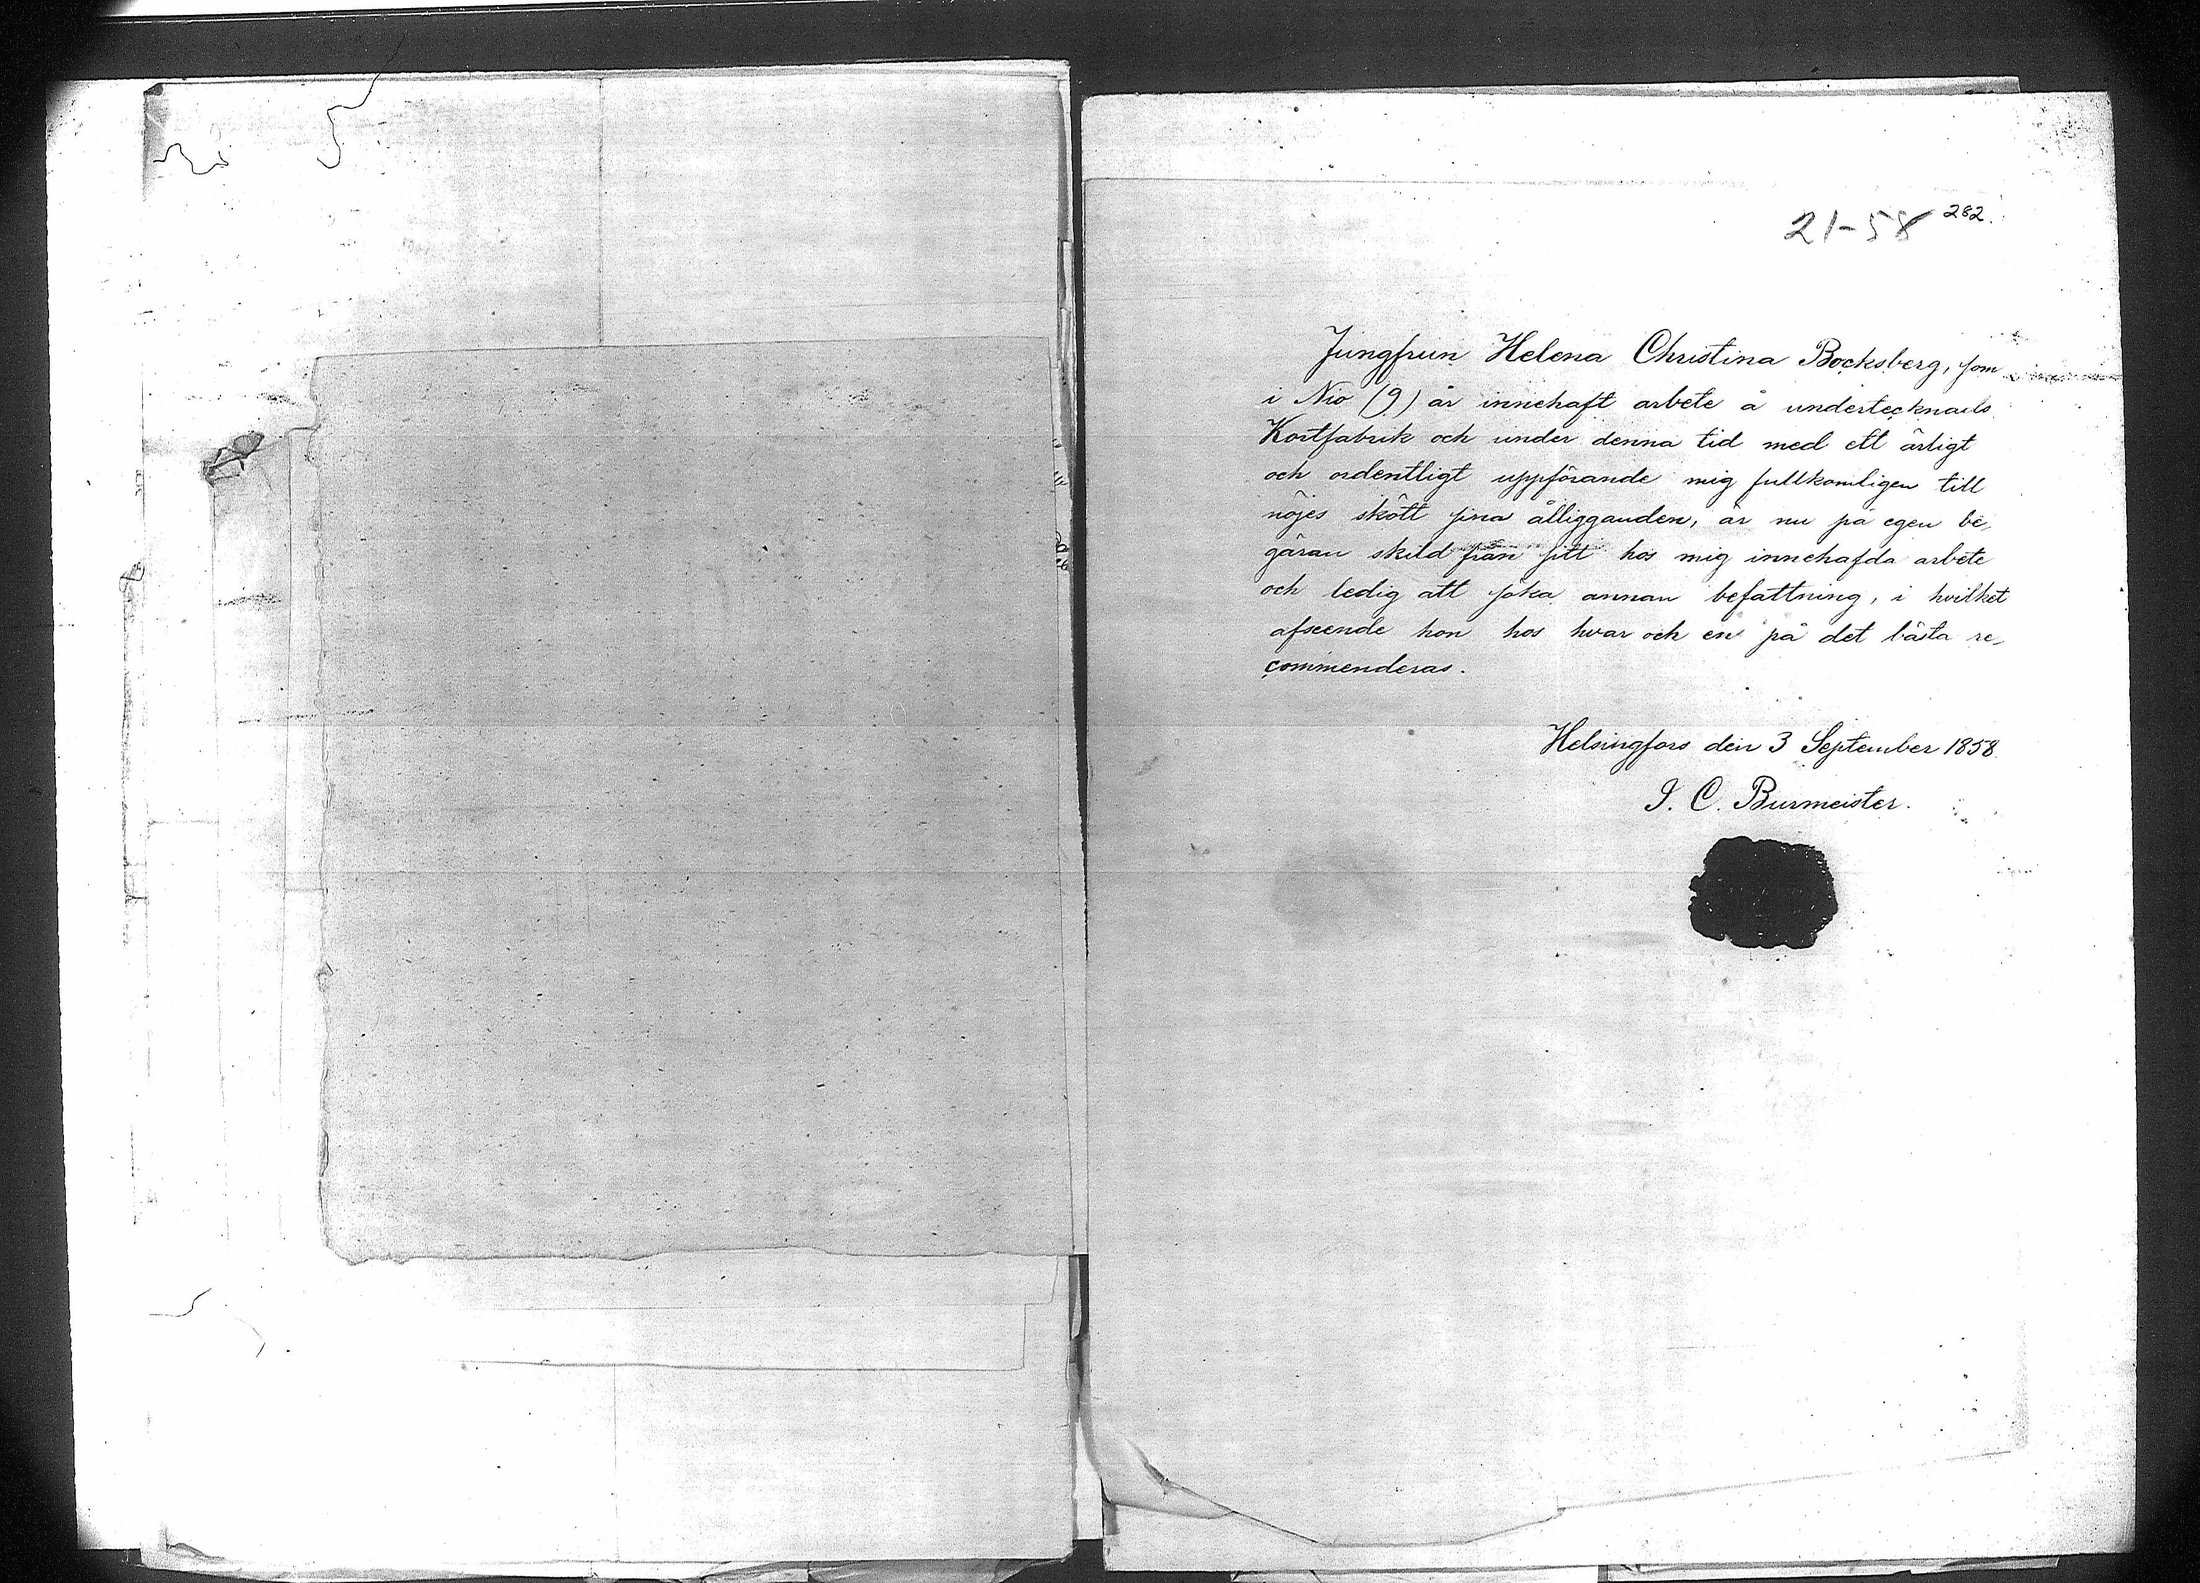 21-58 282.
Jungfrun Helena Christina Bocksberg, som
i Nio (9) år innehaft arbete å undertecknads
Kortfabrik och under denna tid med ett ärligt
och ordentligt uppförande mig fullkomligen till
nöjes skött sina ålligganden, är nu på egen be-
gäran skild från sitt hos mig innehafda arbete
och ledig att söka annan befattning, i hvilket
afseende hon hos hvar och en på det bästa re-
commenderas.
Helsingfors den 3 September 1858.
I. C. Burmeister.